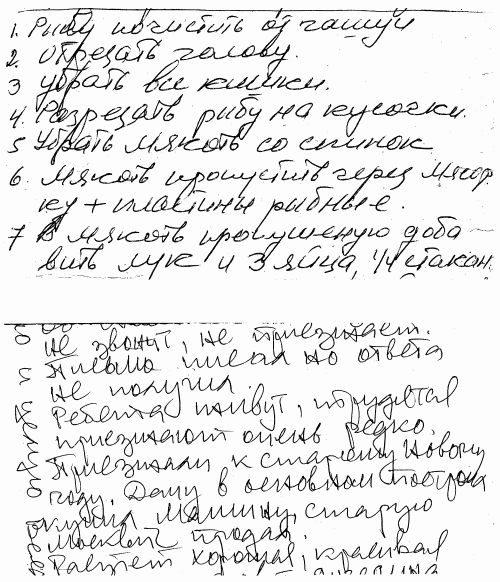 1. Рыбу почистить от чашуи
2. Отрезать голову.
3 Убрать все кишки.
4. Разрезать рибу на кусочки.
5 Убрать мякоть со спинок
6. Мякоть пропустить через мясор
ку + пластины рибные.
7 В мякоть пропушеную доба
вить лук и 3 яйца, 1/4 стакан.
не звонит, не приезжает.
Письмо писал но ответа
не получил.
Ребята живут, трудятся
приезжают очень редко.
Приезжали к старому Новому
году. Дачу в основном
купил машину, старую
москвич продал.
Растет хорошая, красивая